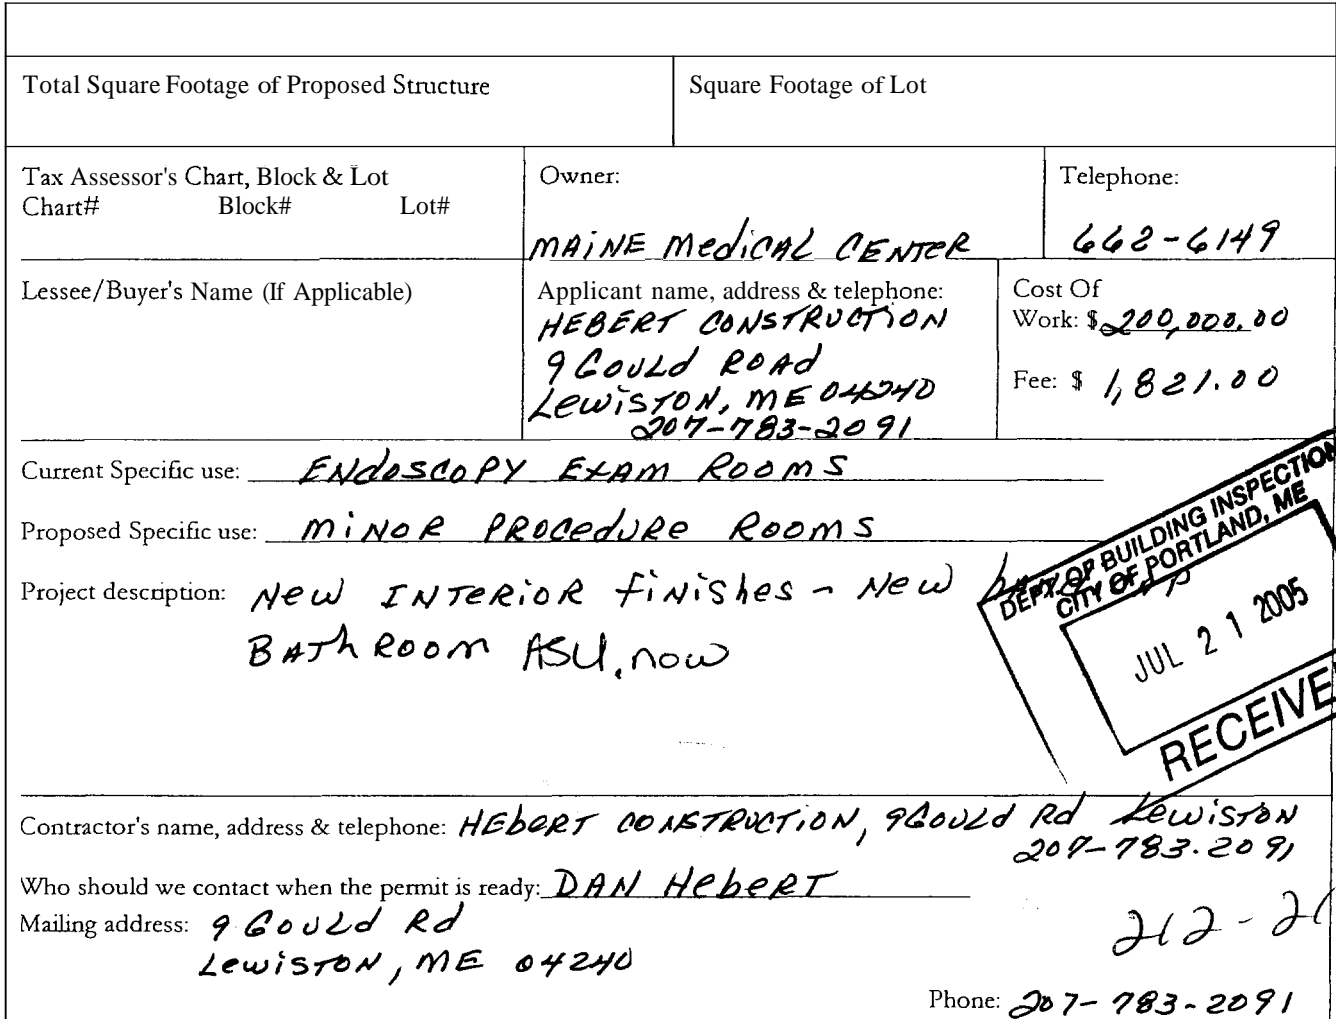 Total Square Footage of Proposed Structure
Square Footage of Lot
Tax Assessor's Chart, Block & Lot
Chart# Block# Lot#
Owner:
MAINE MEDICAL CENTER
Telephone:
662-6149
Lessee/Buyer's Name (If Applicable)
Applicant name, address & telephone:
HEBERT CONSTRUCTION
9 GOULD ROAD
LEWISTON, ME 04240
207-783-2091
Cost Of
Work: $ 200,000.00
Fee: $ 1,821.00
Current Specific use: ENDOSCOPY EXAM ROOMS
Proposed Specific use: MINOR PROCEDURE ROOMS
Project description: NEW INTERIOR FINISHES - NEW
BATHROOM ASU, now
DEPT. OF BUILDING INSPECTION
CITY OF PORTLAND, ME
JUL 21 2005
RECEIVE
Contractor's name, address & telephone: HEBERT CONSTRUCTION, 9 GOULD Rd LEWISTON
207-783-2091
Who should we contact when the permit is ready: DAN HEBERT
Mailing address: 9 GOULD Rd
LEWISTON, ME 04240
212-2
Phone: 207-783-2091